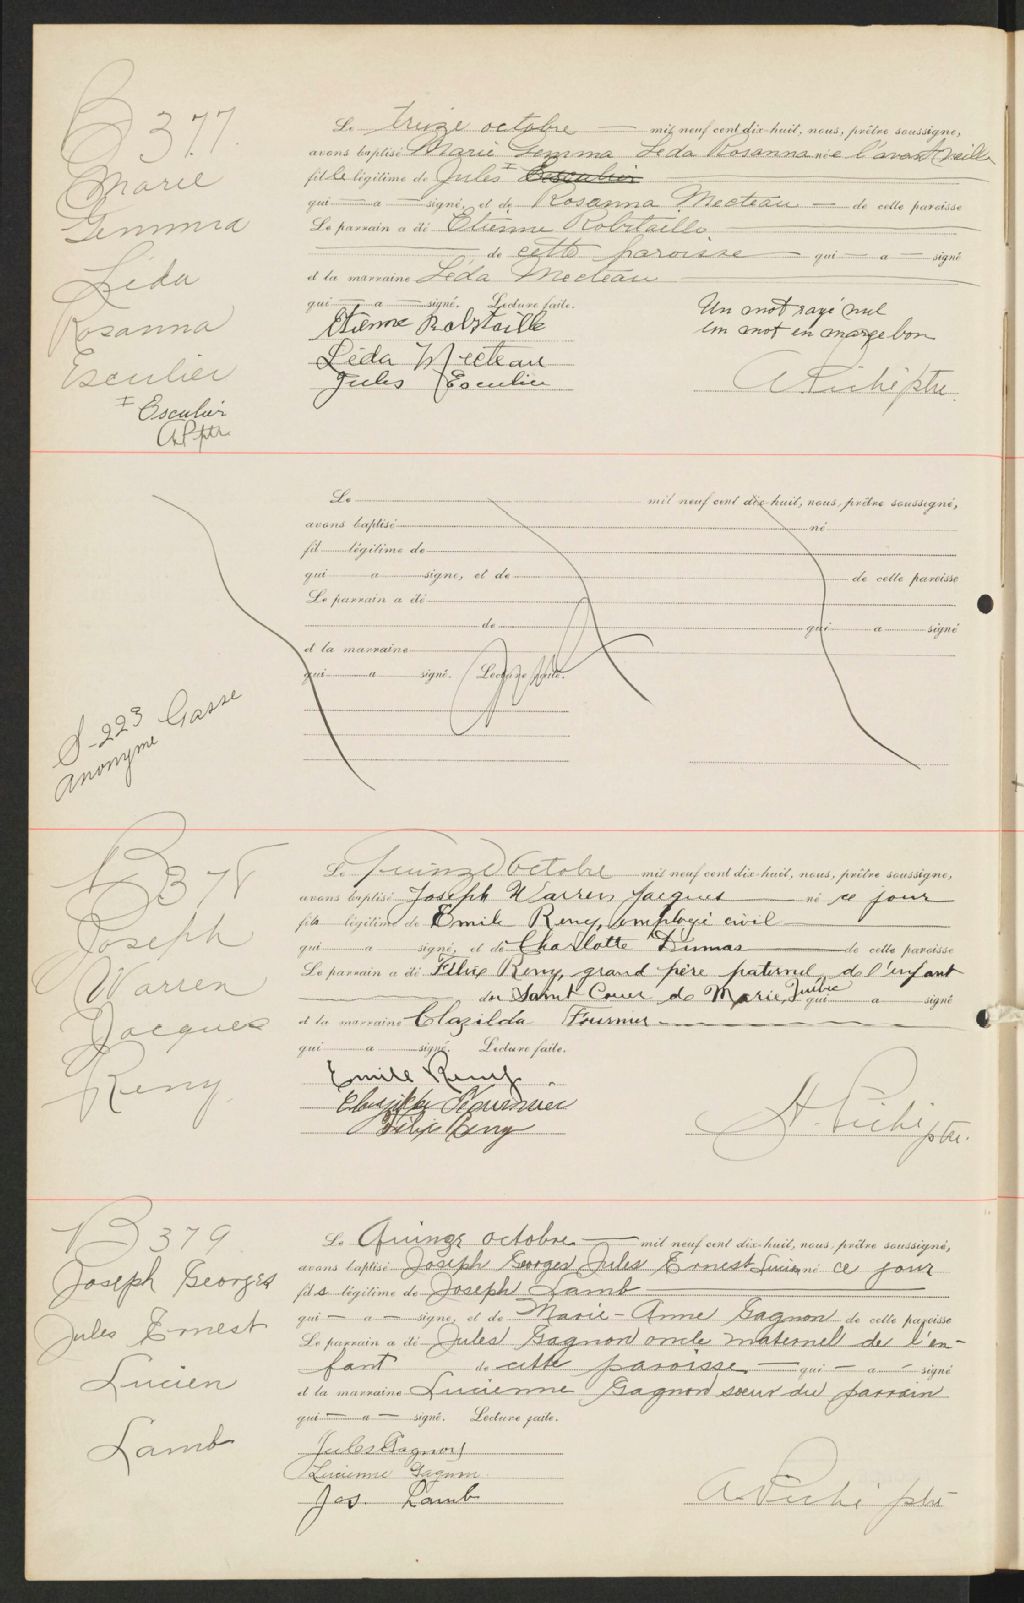 B 377
Marie
Gemma
Léda
Rosanna
Esculier
I Esculier
A.P. ptr.
Le treize octobre — mil neuf cent dix-huit, nous, prêtre soussigné,
avons baptisé Marie Gemma Léda Rosanna née l'avant veille
fille légitime de Jules I Esculier
qui — a — signé, et de Rosanna Mecteau — de cette paroisse
Le parrain a été Etienne Robitaille
de cette paroisse — qui — a — signé
et la marraine Léda Mecteau
qui — a — signé. Lecture faite.
Etienne Robitaille
Léda Mecteau
Jules Esculier
Un mot rayé nul
un mot en marge bon
A Piché ptre.
S-223
Anonyme Gasse
Le mil neuf cent dix-huit, nous, prêtre soussigné,
avons baptisé né
fil légitime de
qui a signé, et de de cette paroisse
Le parrain a été
de qui a signé
et la marraine
qui a signé. Lecture faite.
Nul
B 378
Joseph
Warren
Jacques
Remy
Le Quinze Octobre mil neuf cent dix-huit, nous, prêtre soussigné,
avons baptisé Joseph Warren Jacques né ce jour
fils légitime de Emile Remy, employé civil
qui a signé, et de Charlotte Dumas de cette paroisse
Le parrain a été Félix Remy, grand père paternel de l'enfant
du Saint Coeur de Marie, Québec qui a signé
et la marraine Clazilda Fournier
qui a signé. Lecture faite.
Emile Remy
Clazilda Fournier
Félix Remy
H. Piché ptre.
B 379
Joseph Georges
Jules Ernest
Lucien
Lamb
Le Quinze octobre — mil neuf cent dix-huit, nous, prêtre soussigné,
avons baptisé Joseph Georges Jules Ernest Lucien né ce jour
fils légitime de Joseph Lamb
qui — a — signé, et de Marie-Anne Gagnon de cette paroisse
Le parrain a été Jules Gagnon oncle maternel de l'en-
fant de cette paroisse — qui — a — signé
et la marraine Lucienne Gagnon soeur du parrain
qui — a — signé. Lecture faite.
Jules Gagnon
Lucienne Gagnon
Jos. Lamb
A. Piché ptre